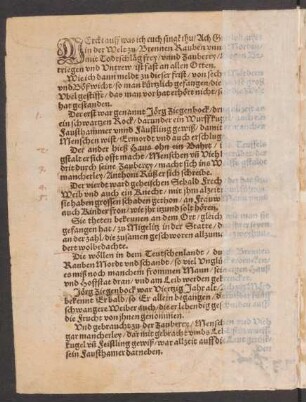 MErckt auff was ich euch singk thu/ Ach G
in der Welt zu/ Brennen Rauben vnn
mit Todtschlag frey/ vnnd Zauberey/
triegen vnd Vntrew ist fast an allen Orten.
Wie ich dann meldt zu dieser frist/ von sech
vnd Bößwicht/ so man kürtzlich gefangen
Vbel gestifft/ das man vorhat erhört nicht/ s
hat gestanden.
Der erst war genannt Jörg Ziegenbock/ der
ein schwartzen Rock/ darunder ein Wurffkugel
Fausthammer vnnd Fäustling gewiß/ damit
Menschen wist/ Ermordt vnd auch erschlug
Der ander hieß Hans ohn ein Bahrt/ i
gstalt er sich offt macht/ Menschen vñ Vieh
ert durch seine Zauberey/ macht sich ins W
mancherley/ Anthoni Küßler sich schreibe.
Der vierdt ward geheissen Sebald Frech
Weib vnd auch ein Knecht/ mit jhm
sie haben grossen schaden gethon/ an Frauw
auch Kinder fron/ wie jhr jetzund solt hören.
Sie theten bekennen an dem Ort/ gleich
gefangen hat/ zu Miglitz in der Statt/
an der zahl/ die zusamen geschworen allzum
dert wolbedachte.
Die wöllen in dem Teutschenlande/ du
Rauben Mordt vnd schandt/ so viel Vnglü
es muß noch manchem frommen Mann/ sein
vnd Hoffstat dran/ vnd am Leib werden ge
Jörg Ziegenbock war Viertzig Jahr alt/
bekennt Er bald/ so Er allein begangen/ di
schwangere Weiber auch/ die er lebendig
die Frucht von jhnen genommen.
Vnd gebraucht zu der Zauberey/ Mensch
gar mancherley/ dar mit gebracht vmbs Leb
kugel vñ Feistling gewiß/ war alzeit auff
sein Fausthamer darneben.